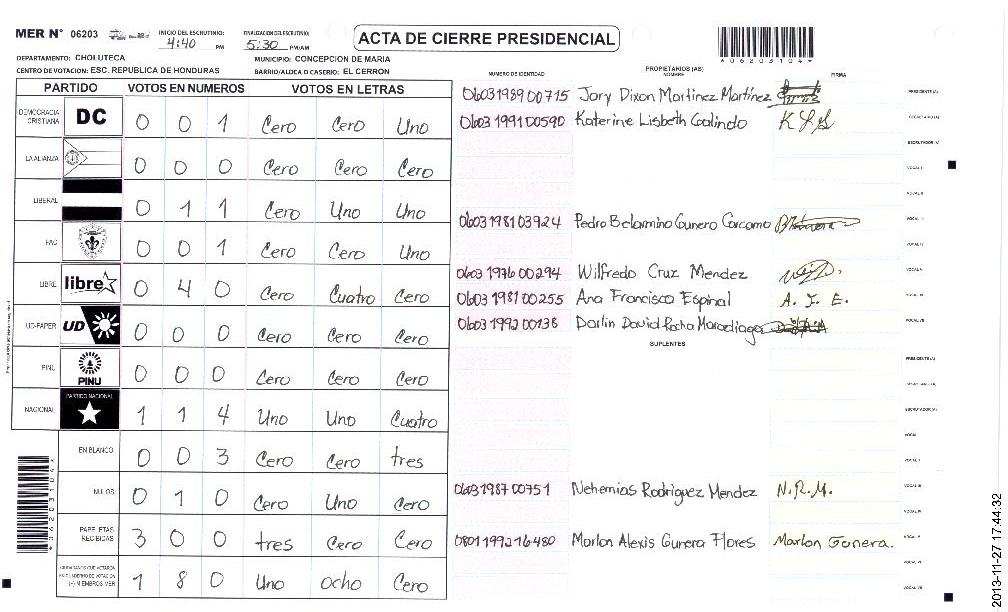 MER N° 06203
INICIO DEL ESCRUTINIO: 4:40 PM
FINALIZACION DEL ESCRUTINIO: 5:30 PM/AM
ACTA DE CIERRE PRESIDENCIAL
*06203104*
DEPARTAMENTO: CHOLUTECA
MUNICIPIO: CONCEPCION DE MARIA
CENTRO DE VOTACION: ESC. REPUBLICA DE HONDURAS
BARRIO/ALDEA O CASERIO: EL CERRON
PARTIDO VOTOS EN NUMEROS VOTOS EN LETRAS
DEMOCRACIA CRISTIANA DC 0 0 1 Cero Cero Uno
LA ALIANZA 0 0 0 Cero Cero Cero
LIBERAL 0 1 1 Cero Uno Uno
PAC 0 0 1 Cero Cero Uno
LIBRE libre 0 4 0 Cero Cuatro Cero
UD-FAPER UD 0 0 0 Cero Cero Cero
PINU PINU 0 0 0 Cero Cero Cero
NACIONAL PARTIDO NACIONAL 1 1 4 Uno Uno Cuatro
EN BLANCO 0 0 3 Cero Cero tres
NULOS 0 1 0 Cero Uno Cero
PAPELETAS RECIBIDAS 3 0 0 tres Cero Cero
CIUDADANOS QUE VOTARON EN CUADERNO DE VOTACION (+) MIEMBROS MER 1 8 0 Uno ocho Cero
*06203104*
PROPIETARIOS (AS)
NUMERO DE IDENTIDAD NOMBRE FIRMA
0603198900715 Jory Dixon Martinez Martinez PRESIDENTE (A)
0603199100590 Katerine Lisbeth Galindo KLG SECRETARIO (A)
ESCRUTADOR (A)
VOCAL I
VOCAL II
0603198103924 Pedro Belarmino Gunera Carcamo VOCAL III
VOCAL IV
0603197600294 Wilfredo Cruz Mendez VOCAL V
0603198100255 Ana Francisco Espinal A. F. E. VOCAL VI
0603199200138 Darlin David Rocha Maradiaga VOCAL VII
SUPLENTES
PRESIDENTE (A)
SECRETARIO (A)
ESCRUTADOR (A)
VOCAL I
VOCAL II
0603198700751 Nehemias Rodriguez Mendez N.R.M. VOCAL III
VOCAL IV
0801199216480 Marlon Alexis Gunera Flores Marlon Gunera. VOCAL V
VOCAL VI
VOCAL VII
2013-11-27 17:44:32